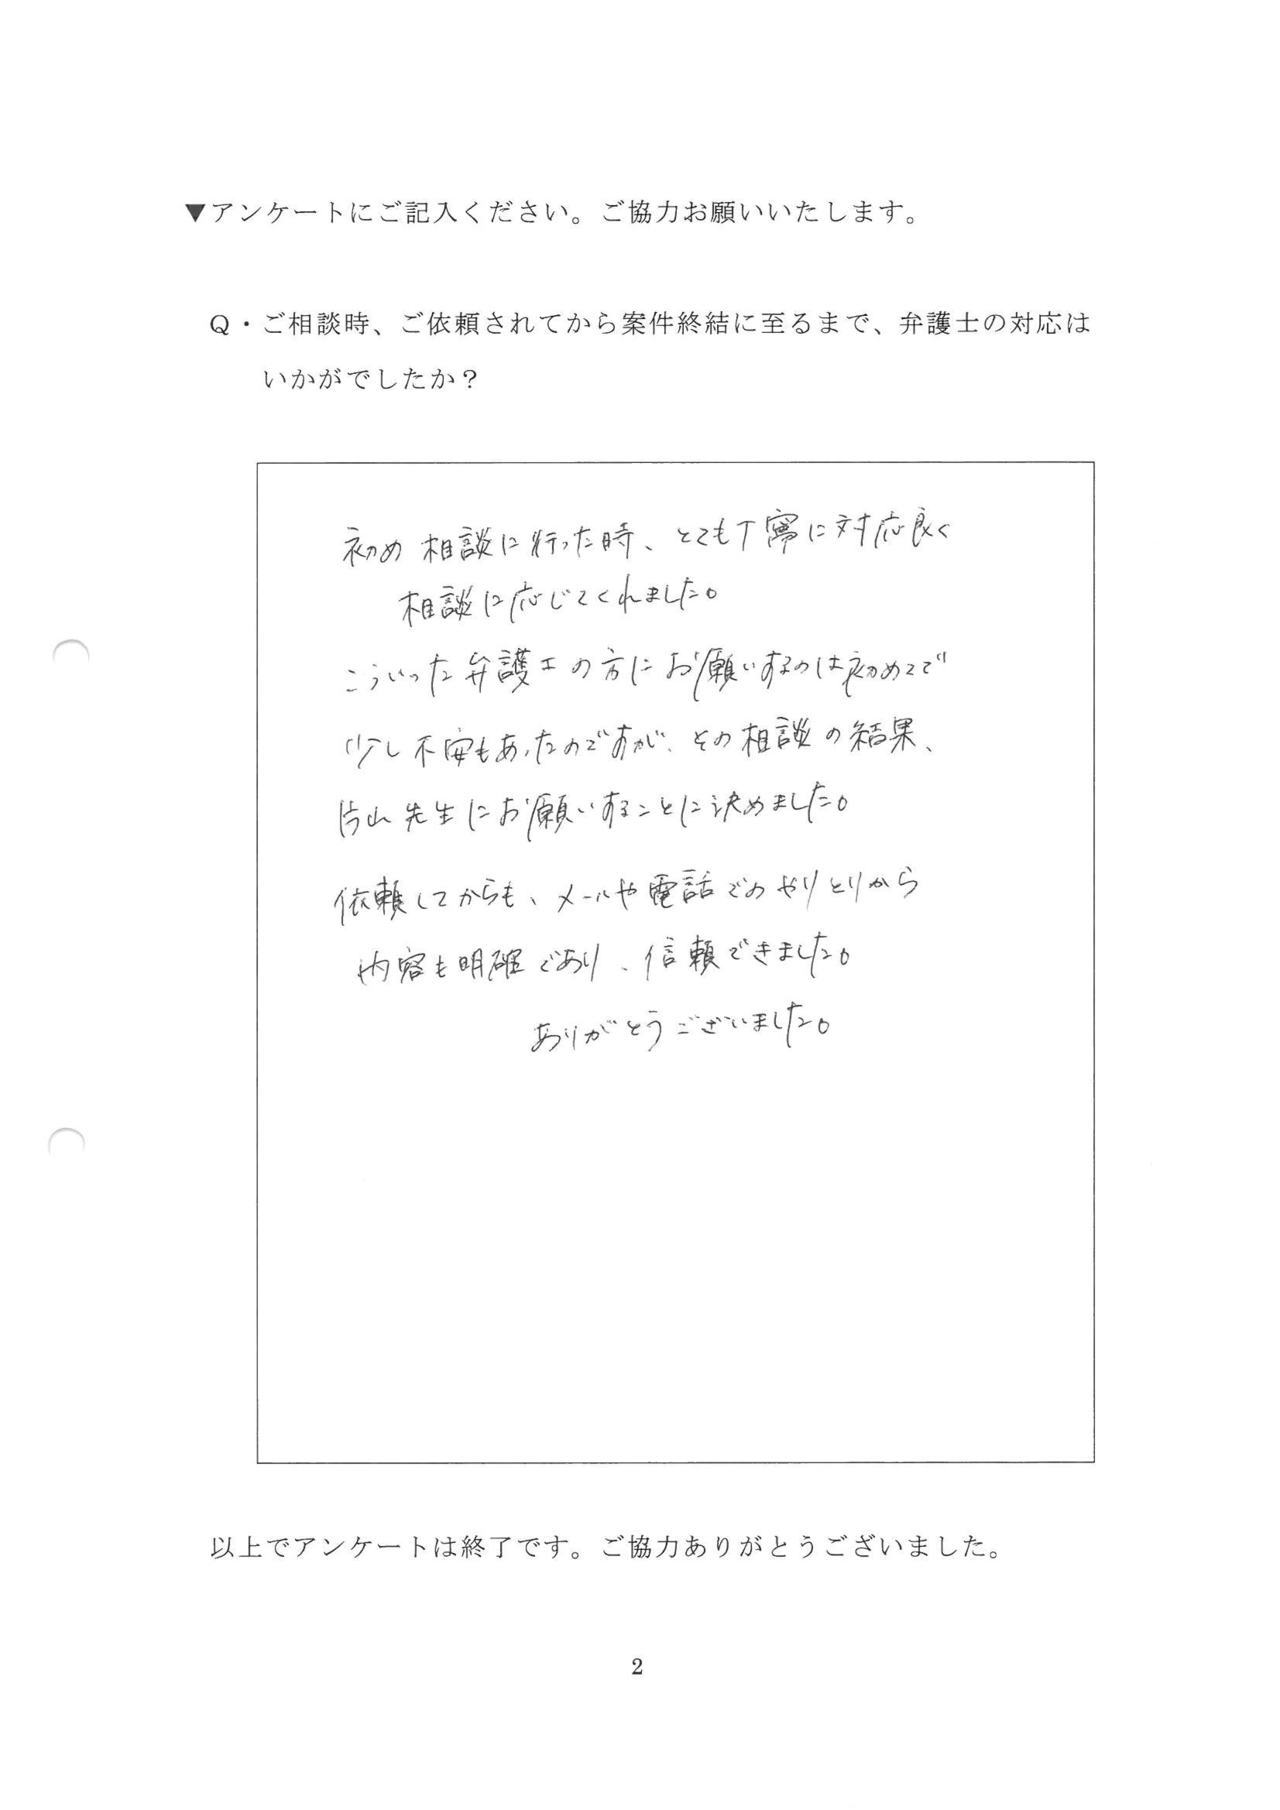 ▼アンケートにご記入ください。ご協力お願いいたします。
Q・ご相談時、ご依頼されてから案件終結に至るまで、弁護士の対応は
いかがでしたか？
初め相談に行った時、とても丁寧に対応良く
相談に応じてくれました。
こういった弁護士の方にお願いするのは初めてで
少し不安もあったのですが、その相談の結果、
片山先生にお願いすることに決めました。
依頼してからも、メールや電話でのやりとりから
内容も明確であり、信頼できました。
ありがとうございました。
以上でアンケートは終了です。ご協力ありがとうございました。
2